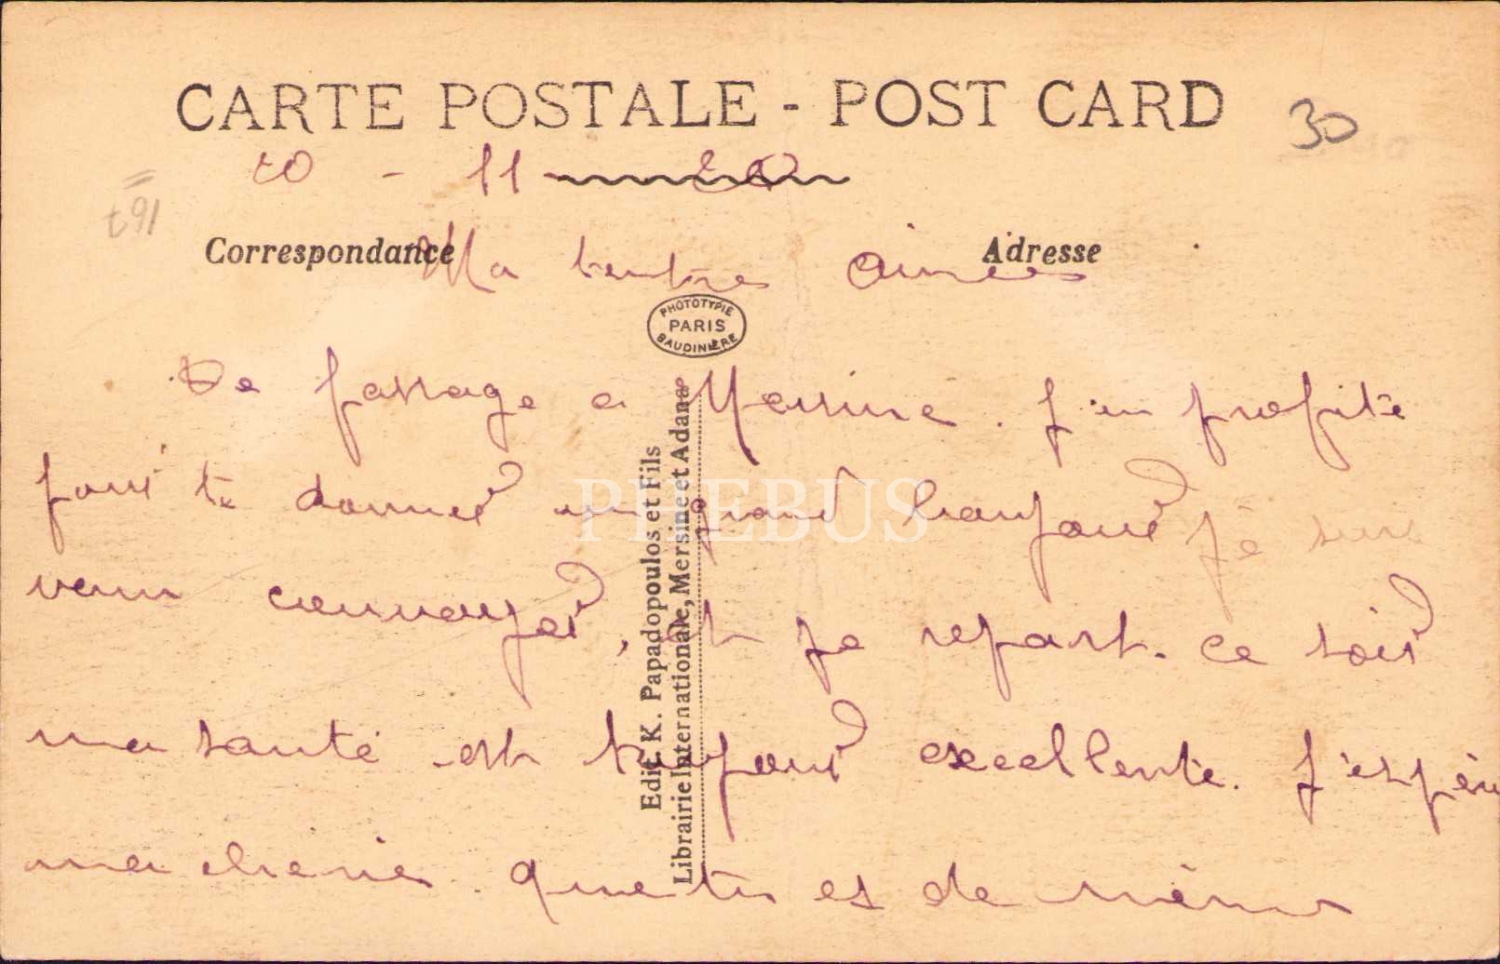 CARTE POSTALE - POST CARD
30
20 - 11 20
t91
Correspondance
Adresse
Ma tendre aimée
PHOTOTYPIE
PARIS
BAUDINIÈRE
De passage a Mersine. J'en profite
pour te donner un grand bonjour Je suis
venu convoyer, et je repart. ce soir
ma santé est toujour excellente. J'espèr
ma cherie que tu es de même
Edit. K. Papadopoulos et Fils
Librairie Internationale, Mersine et Adana
PHEBUS